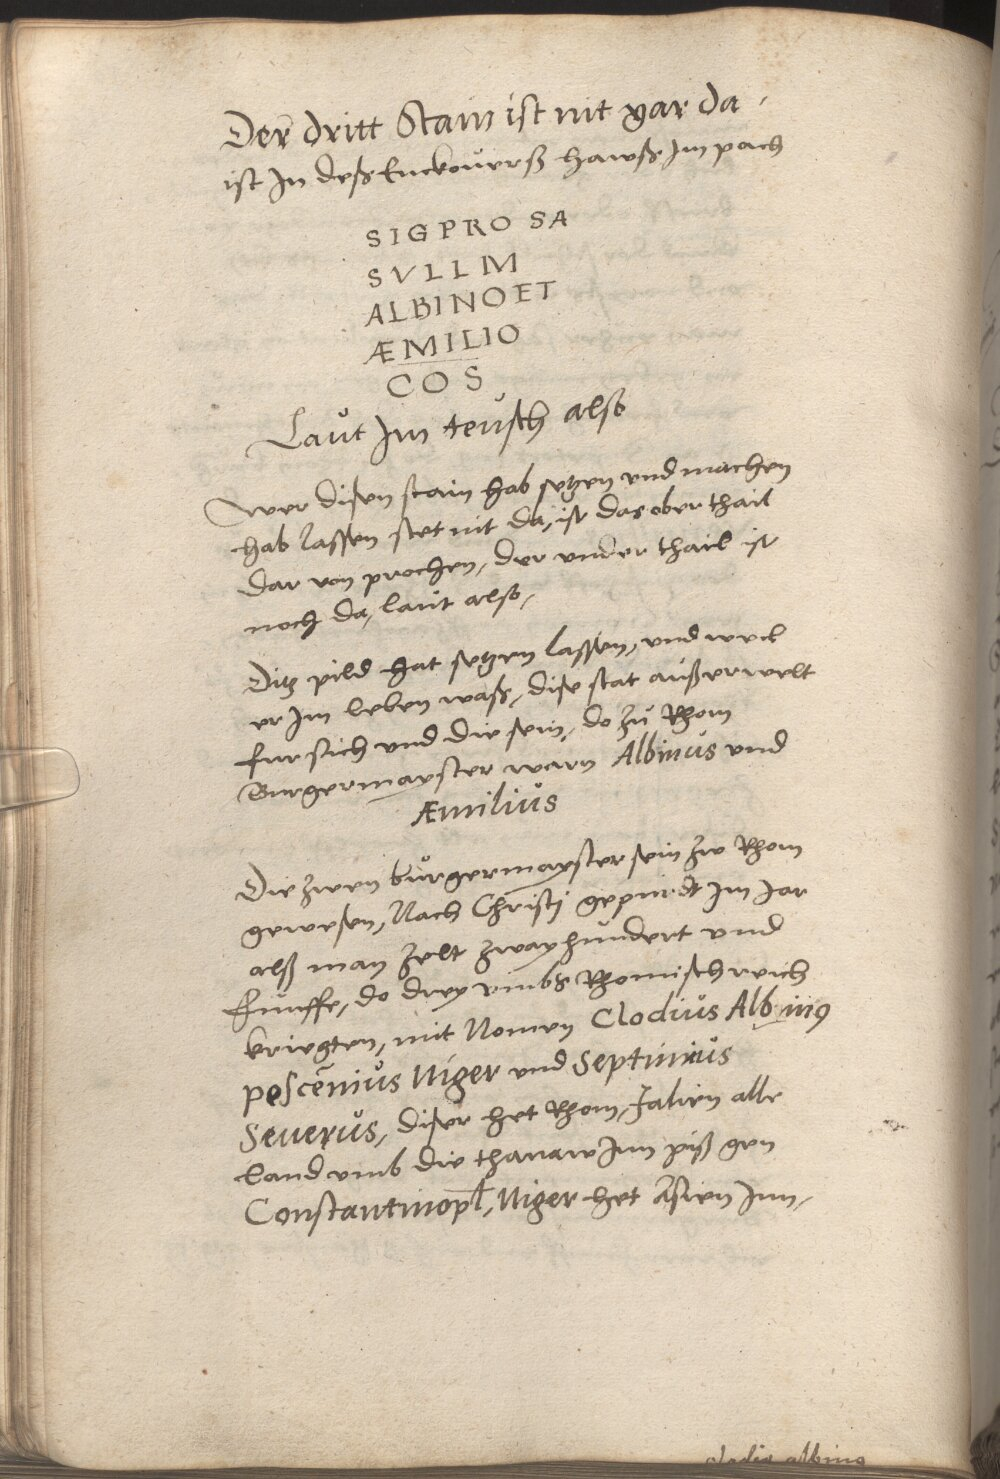 Der dritt Stain ist nit gar da,
ist Jn deß Enckouerß hawß Jm pach
SIG PRO SA
SVLLM
ALBINO ET
ÆMILIO
COS
Laut Jm teusch also
Wer disen stain hab setzen vnd machen
hab lassen stet nit da, ist das ober thail
dar von prochen, der vnder thail ist
noch da, laut also,
Ditz pild hat setzen lassen, vnd weil
er Jm leben waß, dise stat außerwelt
fur sich vnd die sein, do zu Rhom
Burgermayster warn Albinus vnd
Æmilius
Die zwen burgermayster sein zw Rhom
gewesen, Nach Christj gepurdt Jm Jar
alß man zelt zwayhundert vnd
funffe, do drey vmbs Rhomisch reich
kriegten, mit Nomen Clodius Albin9
pescēnius Niger vnd Septimius
Seuerus, diser het Rhom, Jtalien alle
land vmb die thanaw Jnn piß gen
Constantinopl, Niger het Asien Jnn,
clodio albino